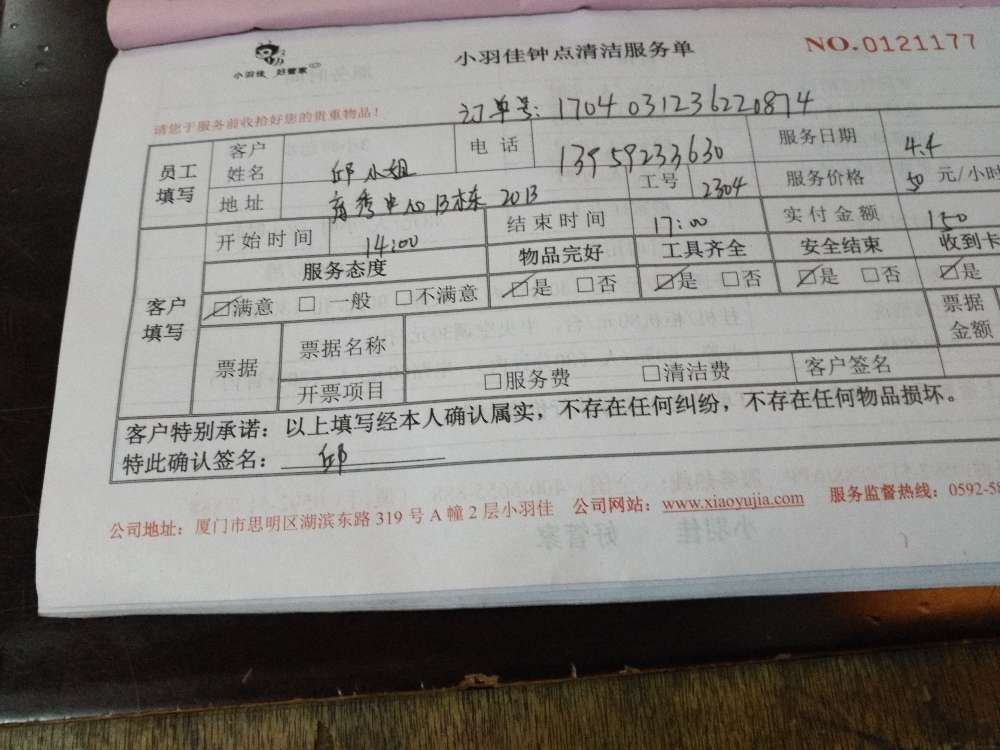 小羽佳 好管家
小羽佳钟点清洁服务单
NO.0121177
请您于服务前收拾好您的贵重物品!
订单号: 1704031236220874
员工填写 客户姓名 邱小姐 电话 13959233630 服务日期 4.4
地址 育秀中心B栋 2013 工号 2304 服务价格 50 元/小时
客户填写 开始时间 14:00 结束时间 17:00 实付金额 150
服务态度 物品完好 工具齐全 安全结束 收到卡
☑满意 □一般 □不满意 ☑是 □否 ☑是 □否 ☑是 □否 ☑是
票据 票据名称 票据金额
开票项目 □服务费 □清洁费 客户签名
客户特别承诺: 以上填写经本人确认属实,不存在任何纠纷,不存在任何物品损坏。
特此确认签名: 邱
公司地址: 厦门市思明区湖滨东路 319 号 A 幢 2 层小羽佳 公司网站: www.xiaoyujia.com 服务监督热线: 0592-58